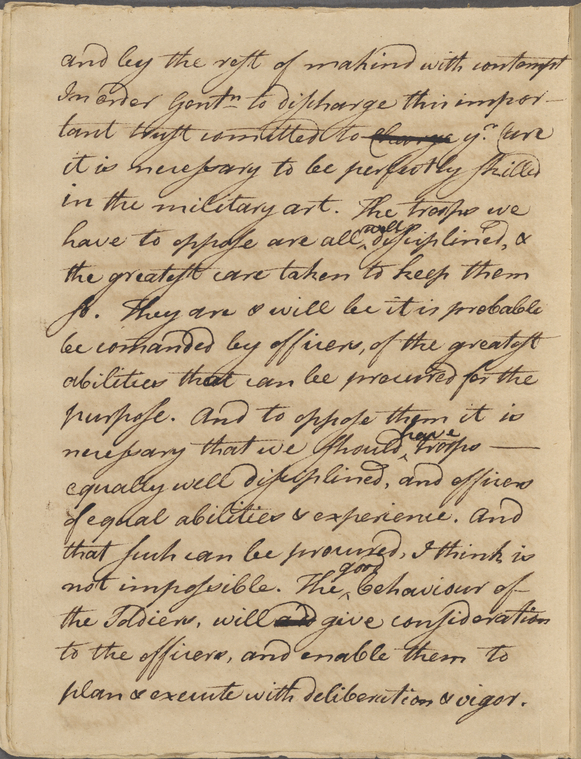 and by the rest of makind with contempt
In order Gentn to discharge this impor-
tant trust comitted to Charge yr. Care
it is necessary to be perfectly skilled
in the military art. The troops we
have to oppose are all well disciplined, &
the greatest care taken to keep them
so. They are & will be it is probable
be comanded by officers, of the greatest
abilities that can be procured for the
purpose. And to oppose them it is
necessary that we should have troops —
equally well disciplined, and officers
of equal abilities & experience. And
that such can be procured, I think is
not impossible. The good behaviour of
the Soldiers, will give consideration
to the officers, and enable them to
plan & execute with deliberation & vigor.